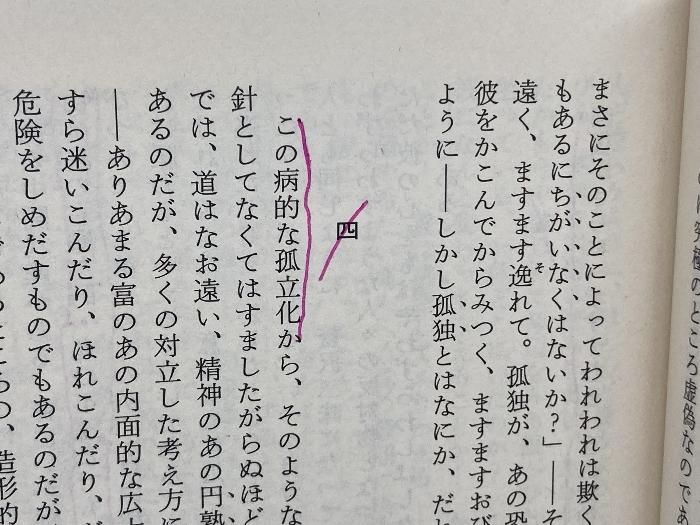 まさにそのことによってわれわれは欺く
もあるにちがいなくはないか？」――そ
遠く、ますます逸れて。孤独が、あの恐
彼をかこんでからみつく、ますますおび
ように――しかし孤独とはなにか、だれ
四
この病的な孤立化から、そのような
針としてなくてはすましたがらぬほど
では、道はなお遠い、精神のあの円熟
あるのだが、多くの対立した考え方に
――ありあまる富のあの内面的な広
すら迷いこんだり、ほれこんだり、
危険をしめだすものでもあるのだが